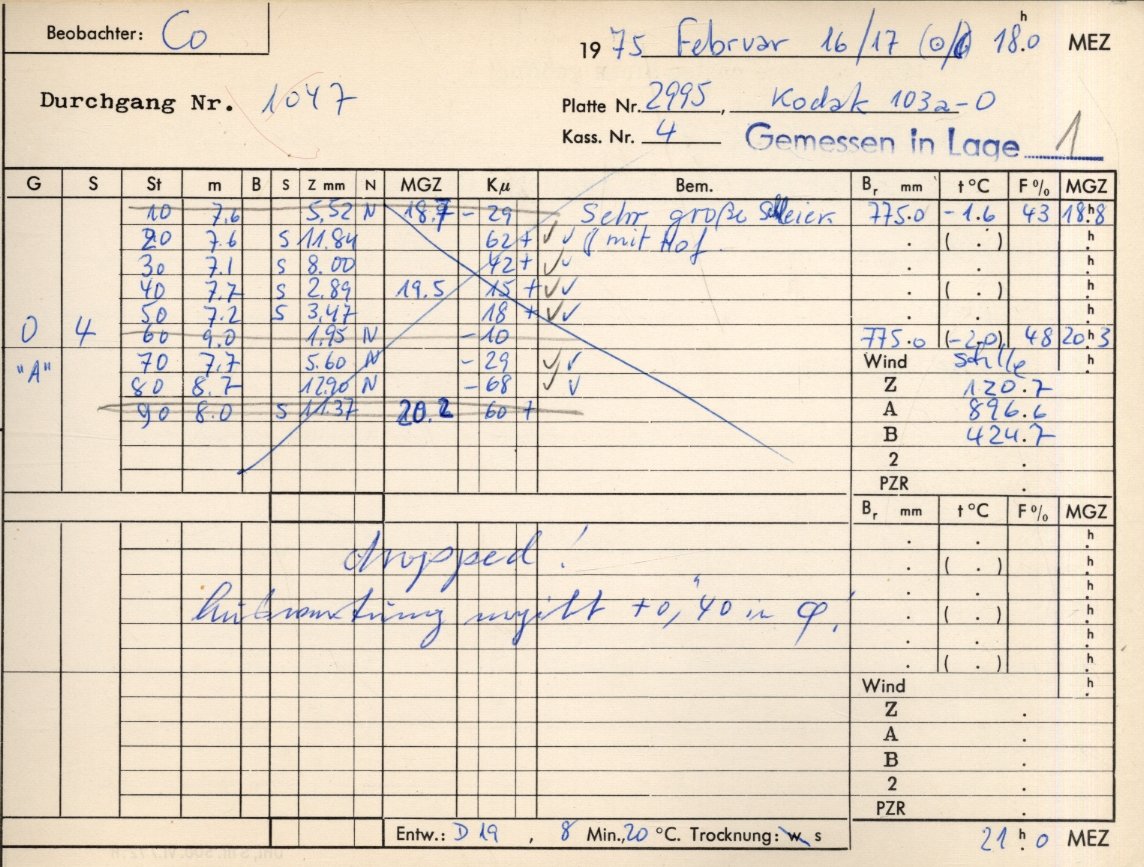 Beobachter: Co
1975 Februar 16/17 18h.0 MEZ
Durchgang Nr. 1047
Platte Nr. 2995, Kodak 103a-O
Kass. Nr. 4 Gemessen in Lage 1
G S St m B S Z mm N MGZ Kµ Bem. Br mm t °C F % MGZ
10 7.6 5,52 N 18.7 - 29 Sehr große Schleier 775.0 -1.6 43 18h.8
20 7.6 S 11.84 62 + (mit Hof. ( . ) h
30 7.1 S 8.00 42 + h
40 7.7 S 2.89 19.5 15 + ( . ) h
50 7.2 S 3.47 18 + h
0 4 60 9.0 1.95 N - 10 775.0 (-2.0) 48 20h.3
"A" 70 7.7 5.60 N - 29 Wind Stille h
80 8.7 12.90 N - 68 Z 120.7
90 8.0 S 11.37 20.2 60 + A 896.6
B 424.7
2 .
PZR .
Br mm t °C F % MGZ
. . h
dropped! . ( . ) h
. . h
ergibt +0",40 in φ! . ( . ) h
. . h
. ( . ) h
Wind h
Z .
A .
B .
2 .
PZR .
Entw.: D 19, 8 Min., 20 °C. Trocknung: w s
21h.0 MEZ